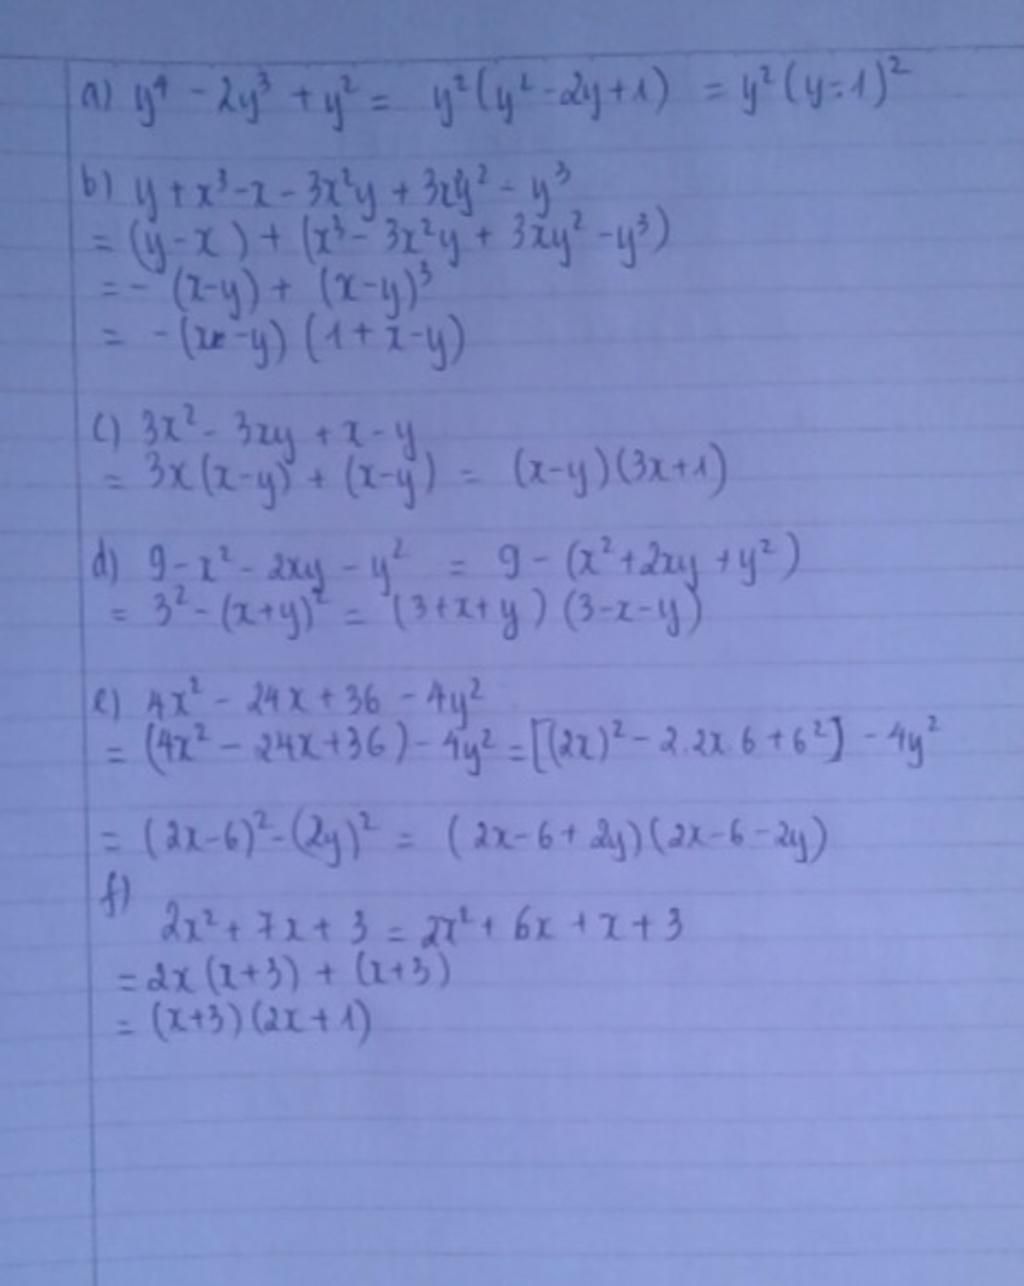 a) y⁴ - 2y³ + y² = y²(y² - 2y + 1) = y²(y - 1)²
b) y + x³ - x - 3x²y + 3xy² - y³
= (y - x) + (x³ - 3x²y + 3xy² - y³)
= - (x - y) + (x - y)³
= - (x - y) (1 + x - y)
c) 3x² - 3xy + x - y
= 3x(x - y) + (x - y) = (x - y)(3x + 1)
d) 9 - x² - 2xy - y² = 9 - (x² + 2xy + y²)
= 3² - (x + y)² = (3 + x + y) (3 - x - y)
e) 4x² - 24x + 36 - 4y²
= (4x² - 24x + 36) - 4y² = [(2x)² - 2.2x.6 + 6²] - 4y²
= (2x - 6)² - (2y)² = (2x - 6 + 2y)(2x - 6 - 2y)
f)
2x² + 7x + 3 = 2x² + 6x + x + 3
= 2x(x + 3) + (x + 3)
= (x + 3)(2x + 1)